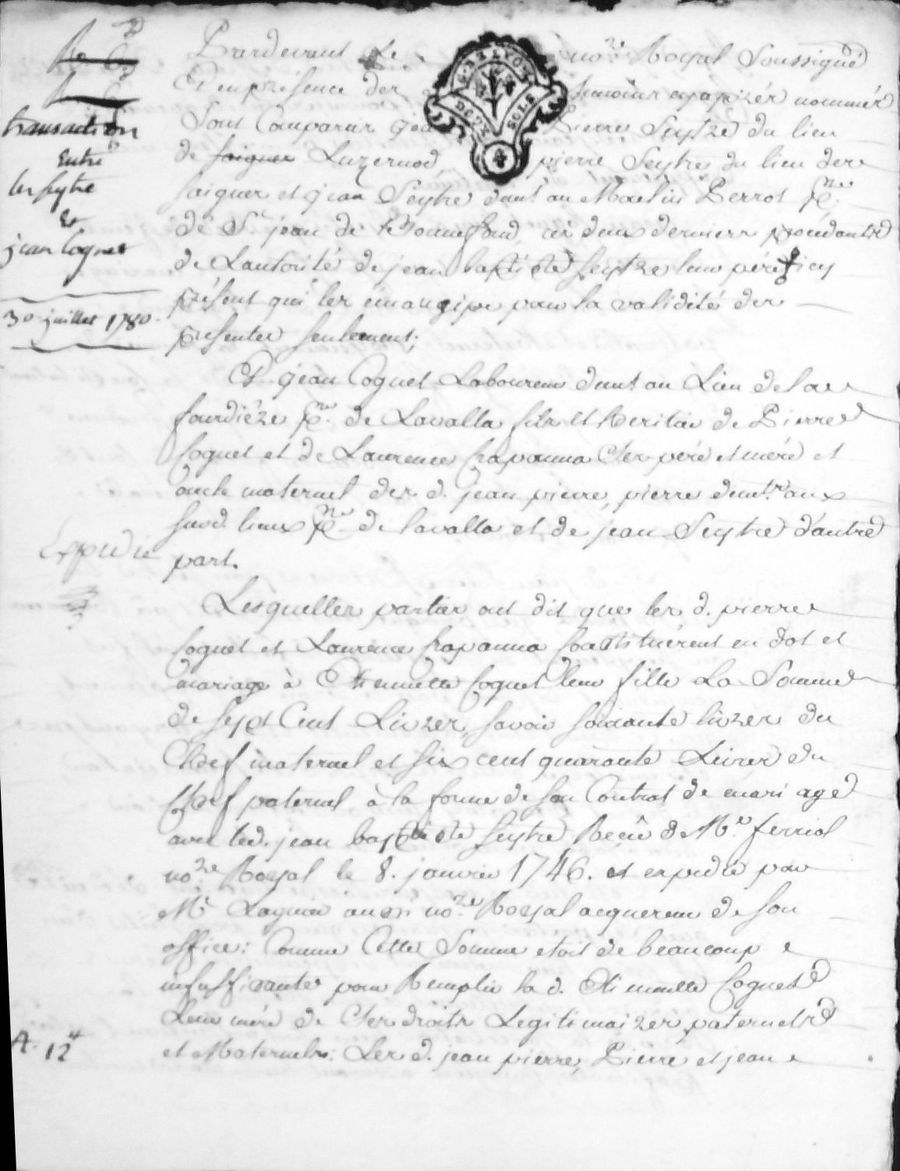 transaction
Entre
les seytre
&
jean Coquet
30 juillet 1780
Expedié
A. 12
4
Pardevant Le no.re Royal Soussigné
Et en presence des temoins cy après nommés
Sont Comparus jean Pierre Seytre du lieu
de Luzernod, pierre Seytre du lieu des
saignes et jean Seytre demt au Moulin Perrot p.sse
de St jean de Bonnefond, ces deux derniers procédants
de Lautorité de jean baptiste Seytre leur père icy
présent qui les emancipe pour la validité des
presentes seulement;
Et jean Coquet Laboureur demt au Lieu de la
fourdiére p.sse de Lavalla fils et heritier de Pierre
Coquet et de Laurence Chapanna Ses pére et mére et
oncle maternel des d. jean pierre, pierre demt. aux
susd. lieux p.sse de Lavalla et de jean Seytre d'autre
part.
Lesquelles parties ont dit que les d. pierre
Coquet et Laurence Chapanna Constituérent en dot et
mariage à Etiennette Coquet leur fille La Somme
de sept Cent Livres, savoir soixante livres du
Chef maternel et six cent quarante Livres du
Chef paternel à la forme de son Contrat de mariage
avec led. jean baptiste Seytre Reçû de Me. ferriol
no.re Royal le 8. janvier 1746. et expedié par
Me aussi no.re Royal acquereur de son
office: Comme Cette Somme etoit de beaucoup
insuffisante pour Remplir la d. Etiennette Coquet
Leur mére de Ses droits Legitimaires paternels
et Maternels: Les d. jean pierre, Pierre et jean